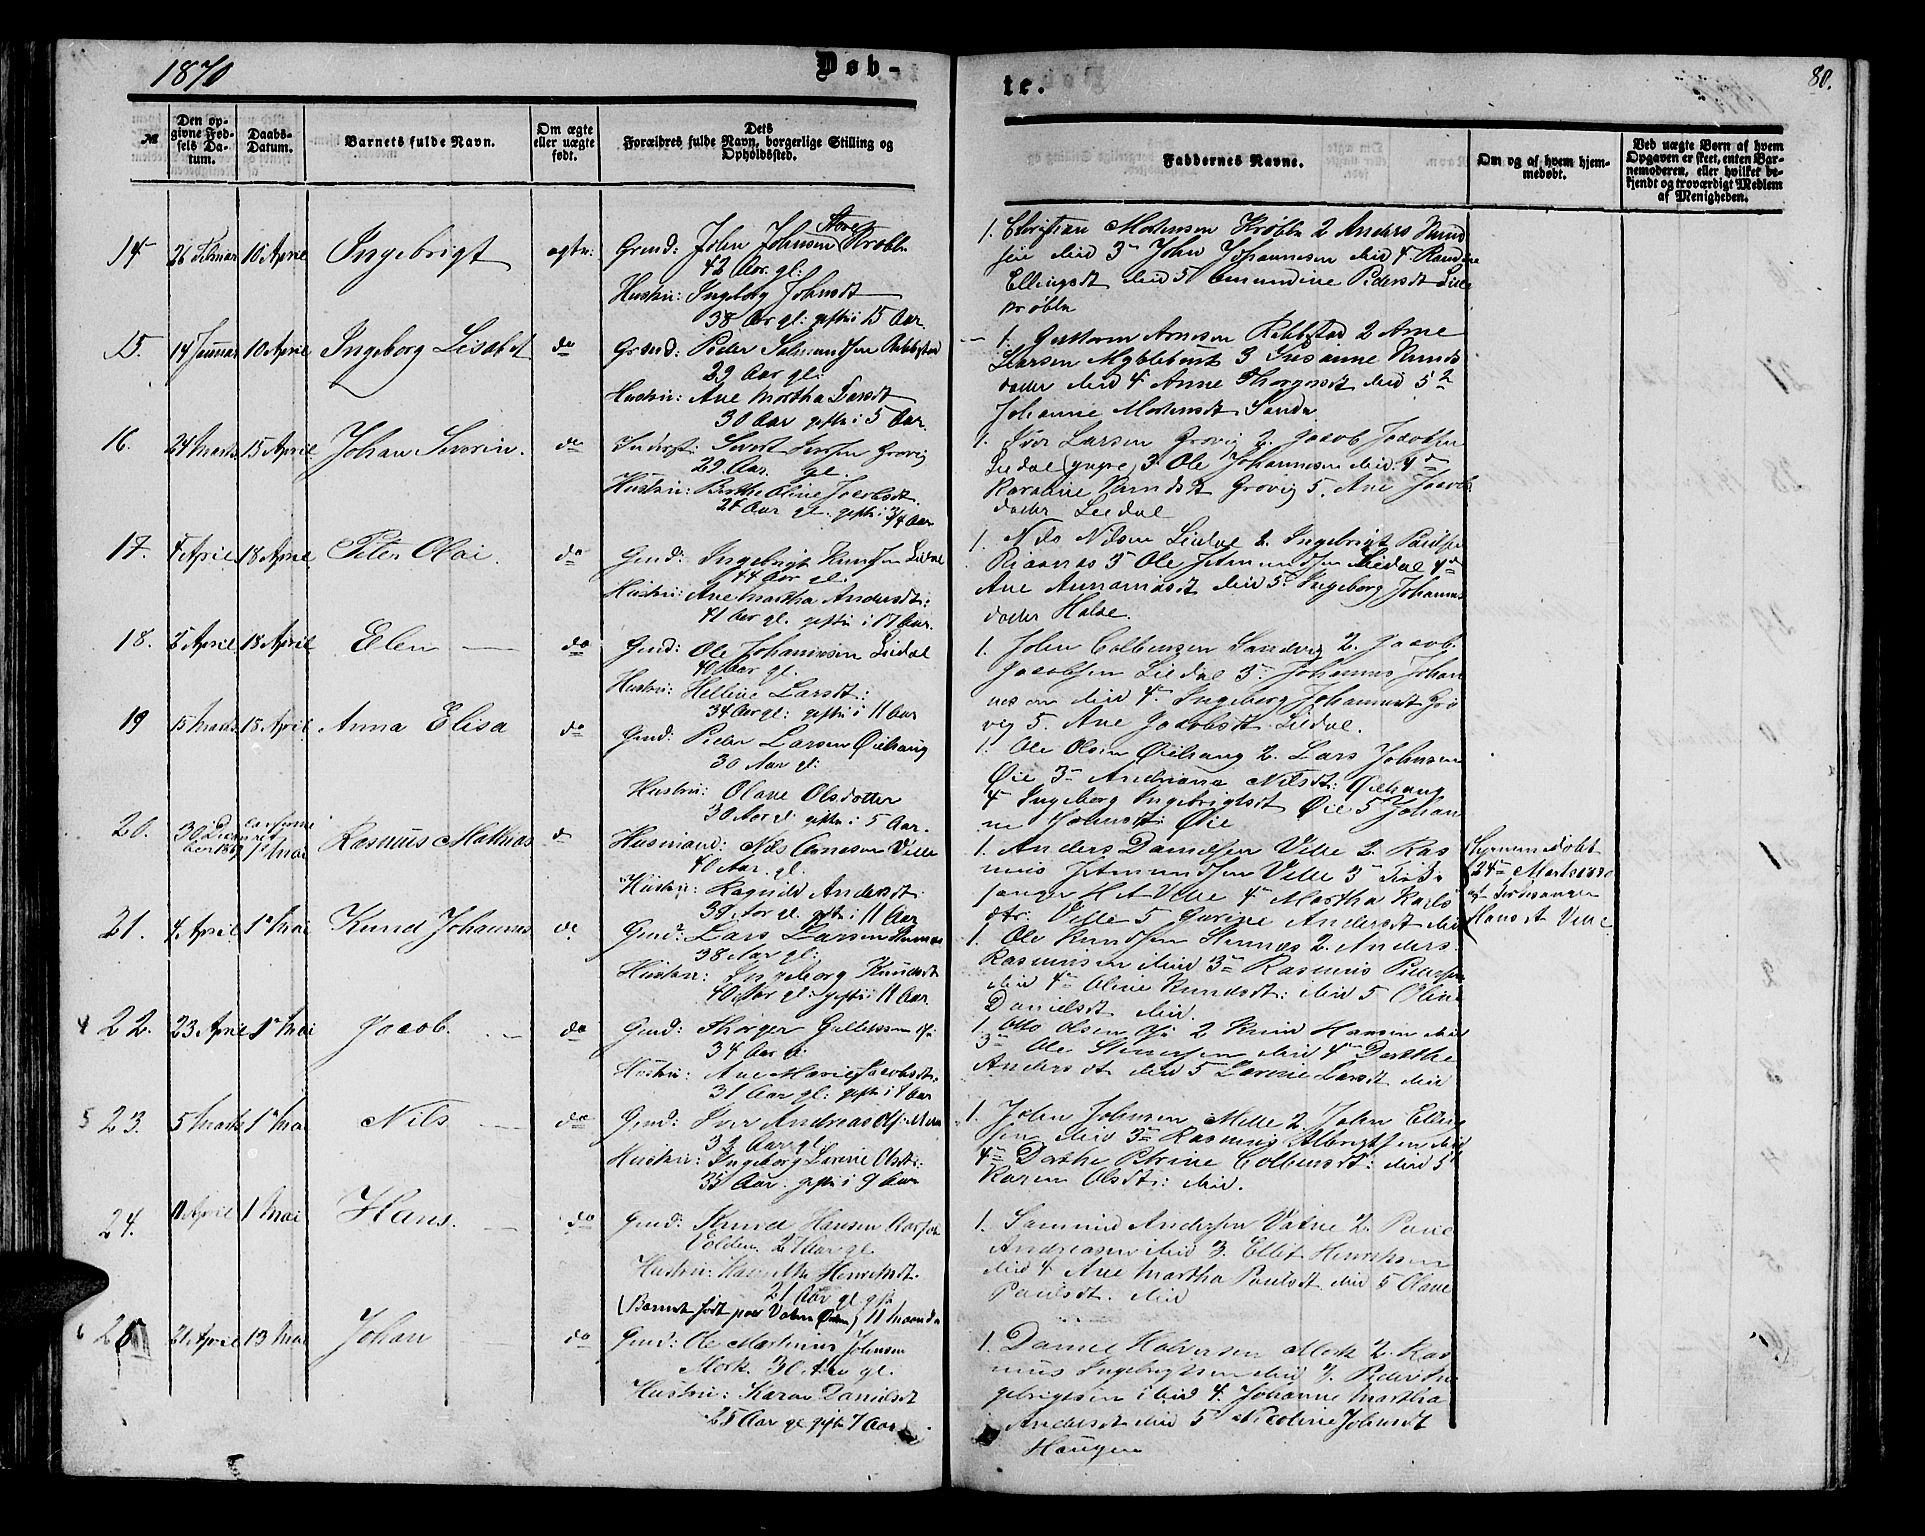 1870
Døb-
№
Den op-
givne Fød-
sels Da-
tum.
Daabs-
Datum.
Barnets fulde Navn.
Om ægte
eller uægte
født.
Dets
Forældres fulde Navn, borgerlige Stilling og
Opholdssted.
14
26 Februar
10 April
Ingebrigt
ægte:
Gmd: John Johnsen Store Krøbbe
42 Aar gl:
Hustru: Ingeborg Johnsdt
38 Aar gl: gifte i 15 Aar.
15.
14 Januar
10 April
Ingeborg Lisabet
do
Gmd: Peder Salmundsen Rebbestad
29 Aar gl:
Hustru: Ane Martha Larsdt
30 Aar gifte i 5 Aar.
16.
24 Marts
15 April
Johan Severin.
do
Inderst: Sivert Iversen Grøvig
29 Aar. gl.
Hustru: Berthe Oline Jacobsdt.
gl. gifte i 3/4 Aar
17.
4 April
18 April
Peter Olai.
do
Gmd: Ingebrigt Knudsen Liedal
44 Aar gl.
Hustru: Ane Martha Andersdt:
41 Aar gl. gifte i 17 Aar.
18.
5 April
18 April
Elen
do
Gmd: Ole Johannesen Liedal
40 Aar gl.
Hustru: Helline Larsdt:
34 Aar gl: gifte i 11 Aar
19
15 Marts
18 April
Anna Elisa
do
Gmd: Peder Larsen Øiehaug
30 Aar gl:
Hustru: Olave Olsdotter
30 Aar gl: gifte i 5 Aar.
20.
30 Decem
ber 1869
confirme
ret
1 Mai
Rasmus Mathias
do
Husmand: Nils Arnesen Velle
40 Aar. gl:
Hustru: Ragnild Andersdt.
38 Aar gl. gifte i 11 Aar
21.
4 April
1ste Mai
Knud Johannes
do
Gmd: Lars Larsen Stennes
38 Aar gl:
Hustru: Ingeborg Knudsdt
40 Aar gl: gifte i 11 Aar.
22.
23 April
1ste Mai
Jacob.
do
Gmd: Thorger Gulliksen
34 Aar gl
Hustru: Ane Marie Jacobsdt.
31 Aar gl: gifte i 1 Aar
23.
5 Marts
1ste Mai
Nils
do
Gmd: Iver Andreas Ols: Melle
33 Aar gl.
Hustru: Ingeborg Lovise Olsdt:
35 Aar. gifte i 9 Aar
24.
11 April
1 Mai
Hans.
do
Gmd: Knud Hansen Aarset
Volden. 27 Aar gl
Hustru: Henriksdt.
21 Aar gl gft
(Barnet født paa Vatne Ørsten) 11 Maaneder
25
21 April
13 Mai
Johan
do
Gmd: Ole Martinus Johnsen
Mork. 30 Aar gl.
Hustru: Karen Danielsdt
25 Aar gl gifte 7 Aar.
te.
80.
Faddernes Navne.
Om og af hvem hjem-
medøbt.
Ved uægte Børn af hvem
Opgaven er skeet, enten Bar-
nemoderen, eller hvilket be-
kjendt og troværdigt Medlem
af Menigheden.
1. Christian Mortensen Krøbbe 2 Anders Knud
sen ibid 3 John Johannesen ibid 4 Randine
Ellingsdt ibid 5 Amundine Pedersdt Lille
krøbbe
1. Guttorm Arnesen Rebbestad 2 Arne
Larsen Myklebust 3 Susanne Knuds
datter ibid 4 Anne Thorgersdt ibid 5
Johanne Mortensdt Sande
1. Iver Larsen Grøvig 2. Jacob Jacobsen
Liedal (yngre) 3. Ole Johannesen ibid. 4
Karoline Grøvig 5. Ane Jacobs
datter Liedal
1. Nils Nilsen Liedal 2. Ingebrigt Paulsen
Ole Liedal 4
Ane ibid 5 Ingeborg Johannes
datter Halse.
1. John Colbensen Sandvig 2. Jacob
Jacobsen Liedal 3 Johannes Johan
nesen ibid 4 Ingeborg Johannesdt Grø
vig 5. Ane Jacobsdt Liedal.
1. Ole Olsen Øiehaug 2. Lars Johnsen
Øie 3 Andriane Nilsdt: Øiehaug
4 Ingeborg Ingebrigtsdt Øie 5 Johan
ne Johnsdt: Øie
1. Anders Danielsen Velle 2. Ras
mus Velle 3 Kirke
sanger H A Velle 4 Martha Karls
dtr. Velle 5 Gurine Andersdt ibid
Hjemmedøbt
24de Marts 1870
af Kirkesanger
Hans A Velle
1. Ole Knudsen Stennes 2. Anders
Rasmusen ibid 3 Rasmus Pedersen
ibid 4 Oline Knudsdt: ibid 5 Oline
Danielsdt ibid.
1. Otto Olsen 2 Knud Hansen ibid
3 Ole Steinersen ibid 4 Dorthe
Andersdt ibid 5 Lovise Larsdt ibid
1. John Johnsen Melle 2. John Elling
sen ibid 3 Rasmus Albrigtsen ibid
4 Dorthe Petrine Colbensdt: ibid 5
Karen Olsdt: ibid.
1. Samund Andersen Vatne 2. Paul
Andreasen ibid 3. Ellit Henriksen
ibid 4 Ane Martha Paulsdt ibid 5 Olave
Paulsdt. ibid
1. Daniel Halversen Mork 2. Ras
mus Ingebrigtsen ibid 3. Peder In
gebrigtsen ibid 4. Johanne Martha
Andersdt ibid 5 Nicoline Johnsdt
Haugen